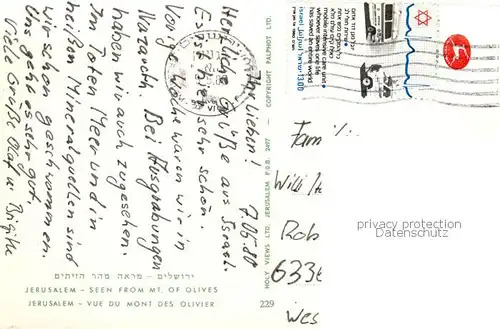 7.06.80
Ihr Lieben!
Herzliche Grüße aus Israel.
Es ist hier sehr schön.
Vorige Woche waren wir in
Nazareth. Bei Ausgrabungen
haben wir auch zugesehen.
Im Toten Meer und in
heißen Mineralquellen sind
wir schon geschwommen.
Uns geht es sehr gut.
Viele Grüße Olaf u. Brigitte
ירושלים – מראה מהר הזיתים
JERUSALEM – SEEN FROM MT. OF OLIVES
JERUSALEM – VUE DU MONT DES OLIVIER
229
HOLY VIEWS LTD. JERUSALEM P.O.B. 2497 · COPYRIGHT PALPHOT LTD.
mobile intensive care unit
whoever saves one life
has saved an entire world
israel 13.00
Fam
Willi
Rob
633
Wes
privacy protection
Datenschutz